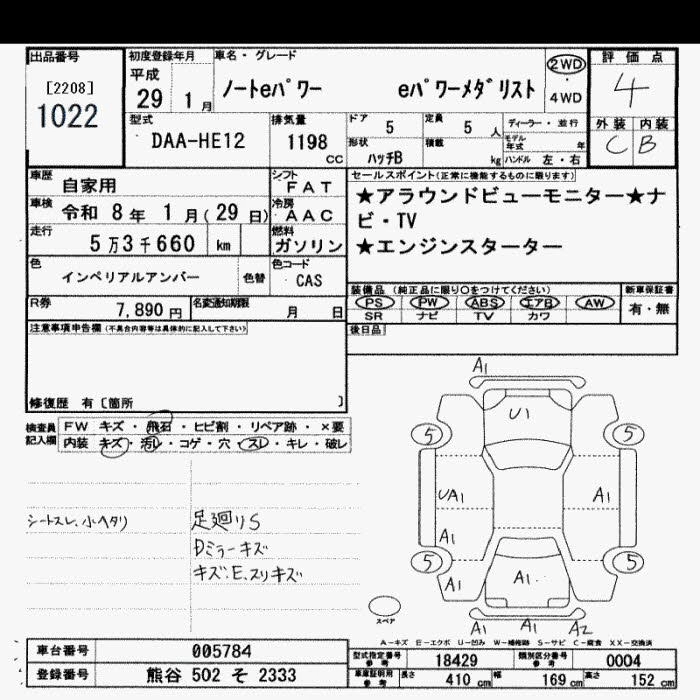 出品番号
[2208]
1022
初度登録年月
平成
29 1月
車名・グレード
ノートeパワー eパワーメダリスト
2WD
・
4WD
評価点
4
外装 内装
C B
型式
DAA-HE12
排気量
1198
CC
ドア
5
定員
5 人
形状
ハッチB
積載
kg
ディーラー・並行
モデル年式 年
ハンドル 左・右
車歴
自家用
シフト
FAT
車検
令和 8年 1月(29日)
冷房
AAC
走行
5万3千660 km
燃料
ガソリン
色
インペリアルアンバー
色替
色コード
CAS
R券
7,890円
名変通知期限
月 日
セールスポイント(正常に機能するものに限ります)
★アラウンドビューモニター★ナ
ビ・TV
★エンジンスターター
装備品(純正品に限り○をつけてください)
PS PW ABS エアB AW
SR ナビ TV カワ
新車保証書
有・無
後日品
注意事項申告欄(不具合内容等は具体的に記入して下さい)
修復歴 有〔箇所 〕
検査員記入欄
FW キズ・飛石・ヒビ割・リペア跡・×要
内装 キズ・汚レ・コゲ・穴・スレ・キレ・破レ
シートスレ、小ヘタリ
足廻りS
Dミラーキズ
キズ:E.スリキズ
A1
U1
5
5
UA1
A1
A1
5
5
A1
A1
A1
A1
A2
スペア
A-キズ E-エクボ U-凹み W-補修跡 S-サビ C-腐食 XX-交換済
車台番号
005784
登録番号
熊谷 502 そ 2333
型式指定番号
参考
18429
類別区分番号
参考
0004
車庫証明用
参考
長さ 410 cm 幅 169 cm 高さ 152 cm